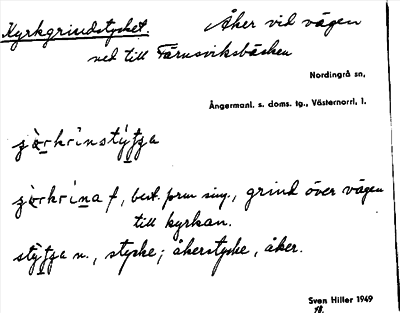 Kyrkgrindstycket. Åker vid vägen
ned till Färnsviksbäcken
Nordingrå sn,
Ångermanl. s. doms. tg., Västernorrl. l.
f, best. form sing., grind över vägen
till kyrkan.
n., stycke; åkerstycke, åker.
Sven Hiller 1949